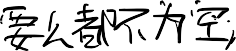 要么都不为空，